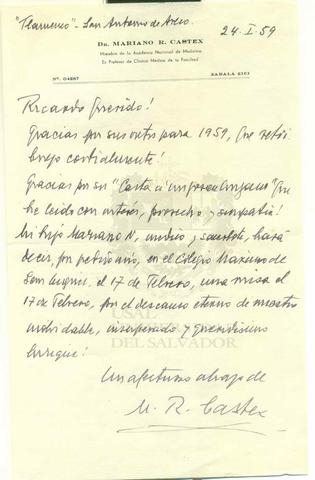 "Flamenco" - San Antonio de Areco.
24-I-59
DR. MARIANO R. CASTEX
Miembro de la Academia Nacional de Medicina
Ex Profesor de Clínica Médica de la Facultad
ZABALA 2101
Ricardo Querido!
Gracias por sus votos para 1959, que retri
buyo cordialmente!
Gracias por su "Carta a un joven cirujano" que
he leído con interés, provecho y simpatía!
Mi hijo Mariano N, médico y sacerdote, hará
decir, por pedido mío, en el Colegio Máximo de
San Miguel, el 17 de Febrero, una misa el
17 de Febrero, por el descanso eterno de nuestro
inolvidable, inesperado y queridísimo
Enrique!
Un afectuoso abrazo de
M. R. Castex
USAL
DEL SALVADOR